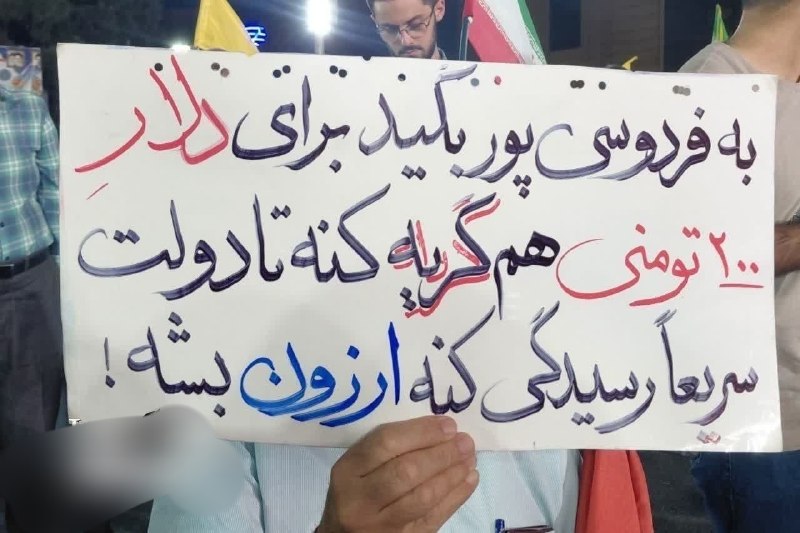 به فردوسی پور بگید برای دلارِ
۲۰۰ تومنی هم گریه کنه تا دولت
سریعاً رسیدگی کنه ارزون بشه!